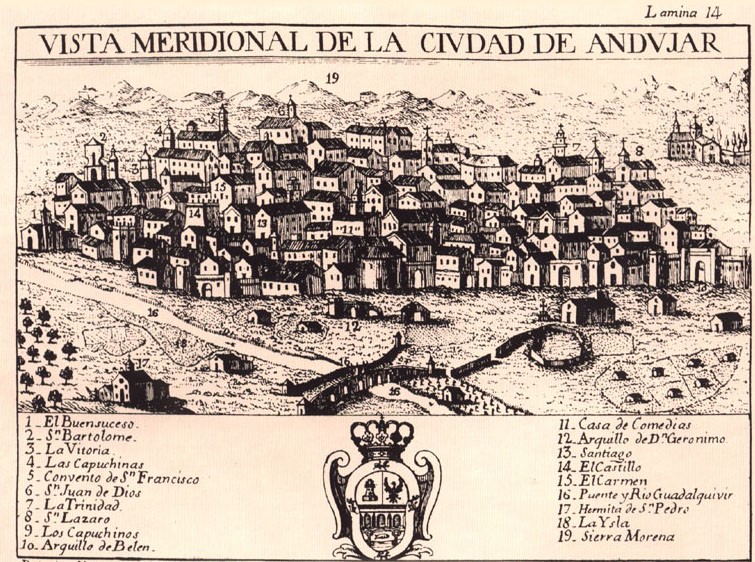 Lamina 14
VISTA MERIDIONAL DE LA CIVDAD DE ANDVJAR
19
1_ El Buensuceso.
2_ Sn Bartolome.
3_ La Vitoria
4_ Las Capuchinas
5_ Convento de Sn Francisco
6_ Sn Juan de Dios
7_ La Trinidad.
8_ Sn Lazaro
9_ Los Capuchinos
10_ Arquillo de Belen.
11_ Casa de Comedias
12_ Arquillo de Dn Geronimo.
13_ Santiago
14_ El Castillo
15_ El Carmen
16_ Puente y Rio Guadalquivir
17_ Hermita de Sn Pedro
18_ La Ysla
19_ Sierra Morena